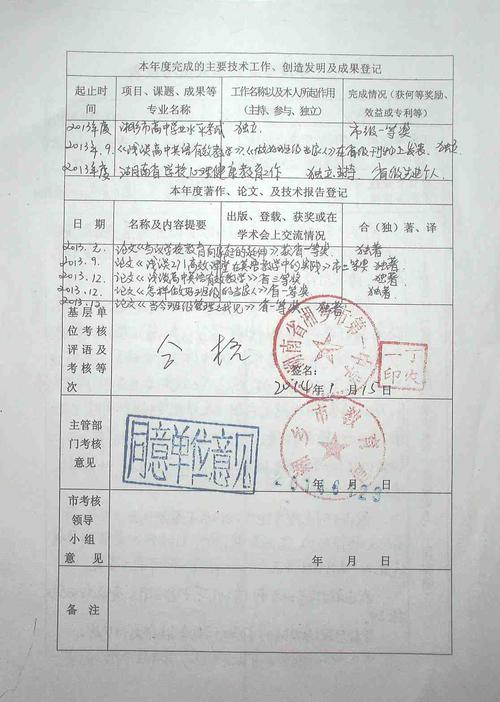 本年度完成的主要技术工作、创造发明及成果登记
起止时间 项目、课题、成果等专业名称 工作名称以及本人所起作用（主持、参与、独立） 完成情况（获何等奖励、效益或专利等）
2013年度 湘乡市高中学业水平考试 独立 市级一等奖
2013年9月 《浅谈高中英语有效教学》《做好班级当家人》在省级刊物上发表 独立
2013年度 湖南省学校心理健康教育工作 独立主持 省级先进个人
本年度著作、论文、及技术报告登记
日期 名称及内容提要 出版、登载、获奖或在学术会上交流情况 合（独）著、译
2013.2. 论文 获省一等奖 独著
2013.9. 论文《浅谈271高效课堂在英语教学中的实践》市二等奖 独著
2013.12. 论文《浅谈高中英语有效教学》省三等奖 独著
2013.12. 论文《怎样做好班级的当家人》省一等奖 独著
2013.12. 论文《当今班级管理之我见》省一等奖 独著
基层单位考核评语及考核等次
合格
湖南省湘乡市第一中学
签名：
丁农一印
2014年1月15日
主管部门考核意见
同意单位意见
湘乡市教育局
年 月 日
市考核领导小组意见
年 月 日
备注